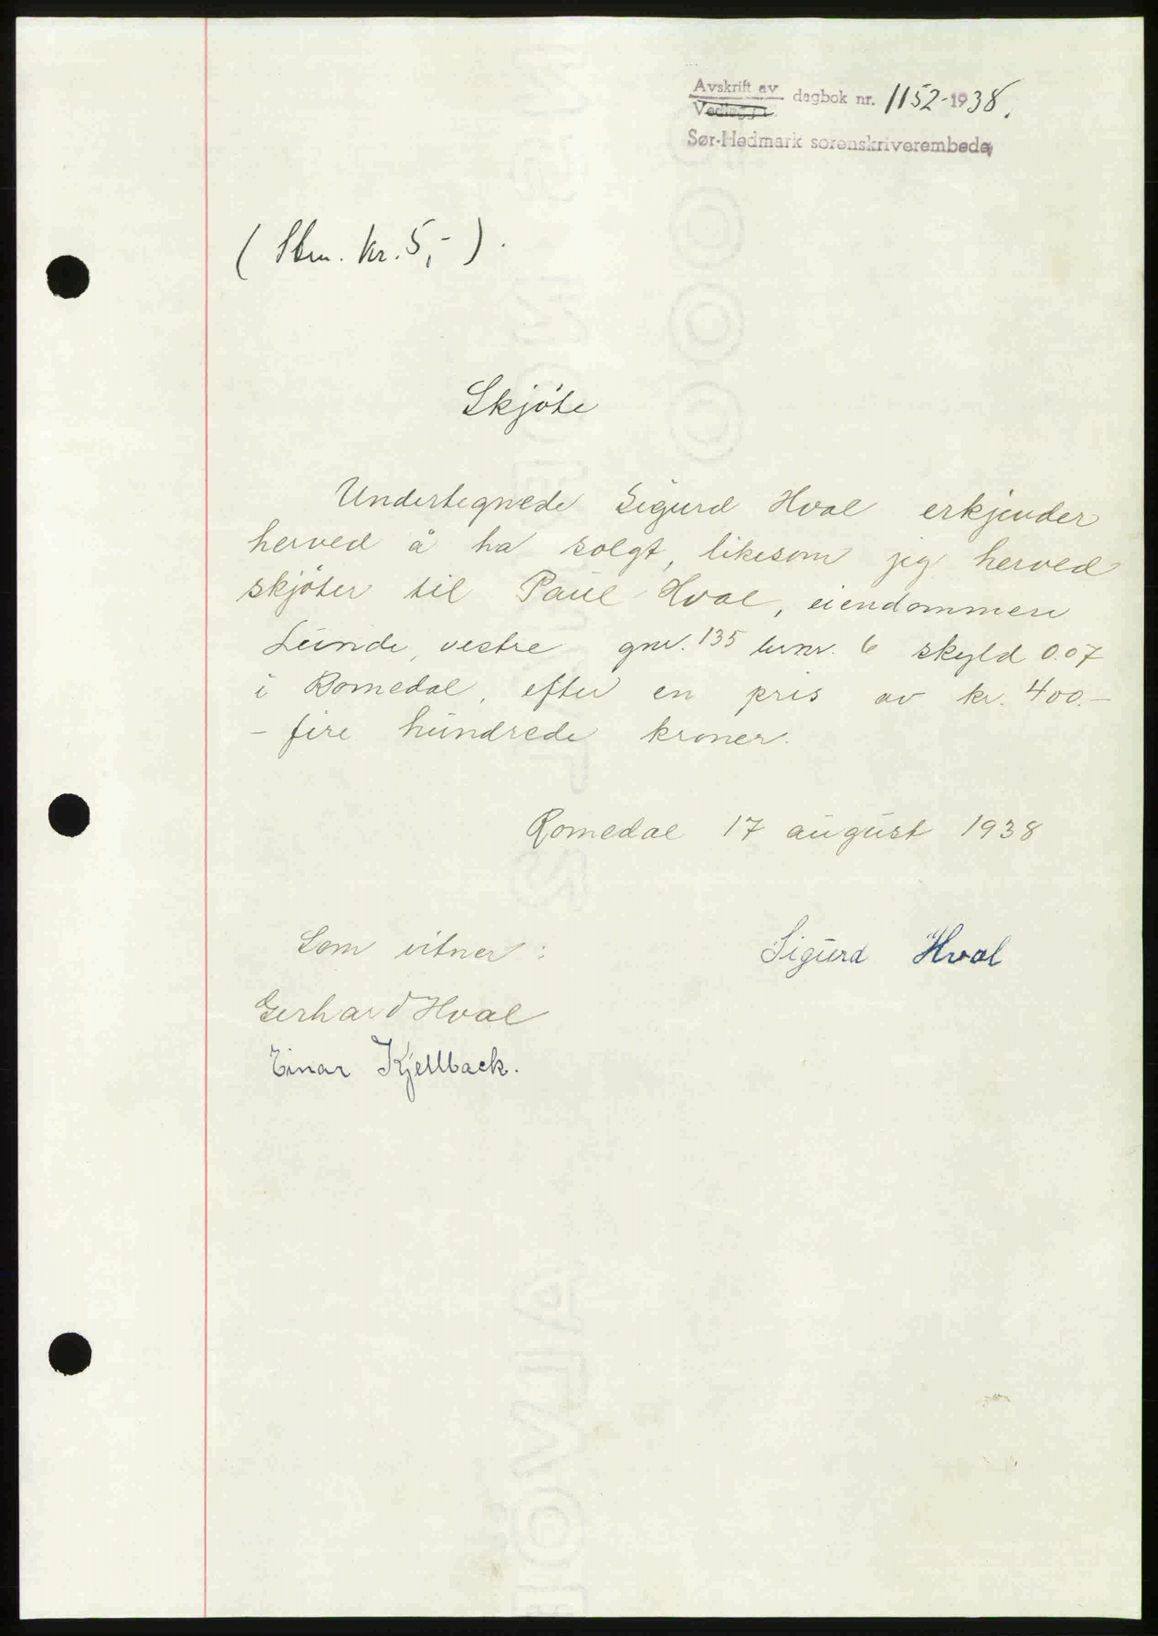 Avskrift av
Vedlegg til
dagbok nr. 1152-1938.
Sør-Hedmark sorenskriverembede
( Stm. kr. 5,- ).
Skjöte
Undertegnede Sigurd Hval erkjender
herved å ha solgt, likesom jeg herved
skjöter til Paul Hval, eiendommen
Lunde, vestre gnr. 135 brnr. 6 skyld 0.07
i Romedal, efter en pris av kr. 400.-
- fire hundrede kroner.
Romedal 17 august 1938
Som vitner :
Sigurd Hval
Gerhard Hval
Einar Kjellback.